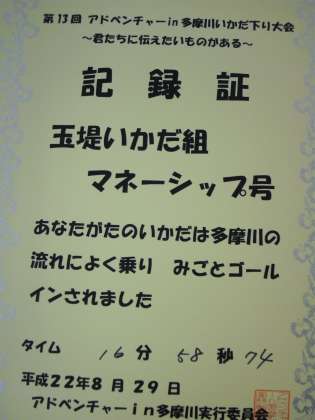 第13回 アドベンチャーin多摩川いかだ下り大会
～君たちに伝えたいものがある～
記録証
玉堤いかだ組
マネーシップ号
あなたがたのいかだは多摩川の
流れによく乗り みごとゴール
インされました
タイム 16分58秒74
平成22年8月29日
アドベンチャーin多摩川実行委員会